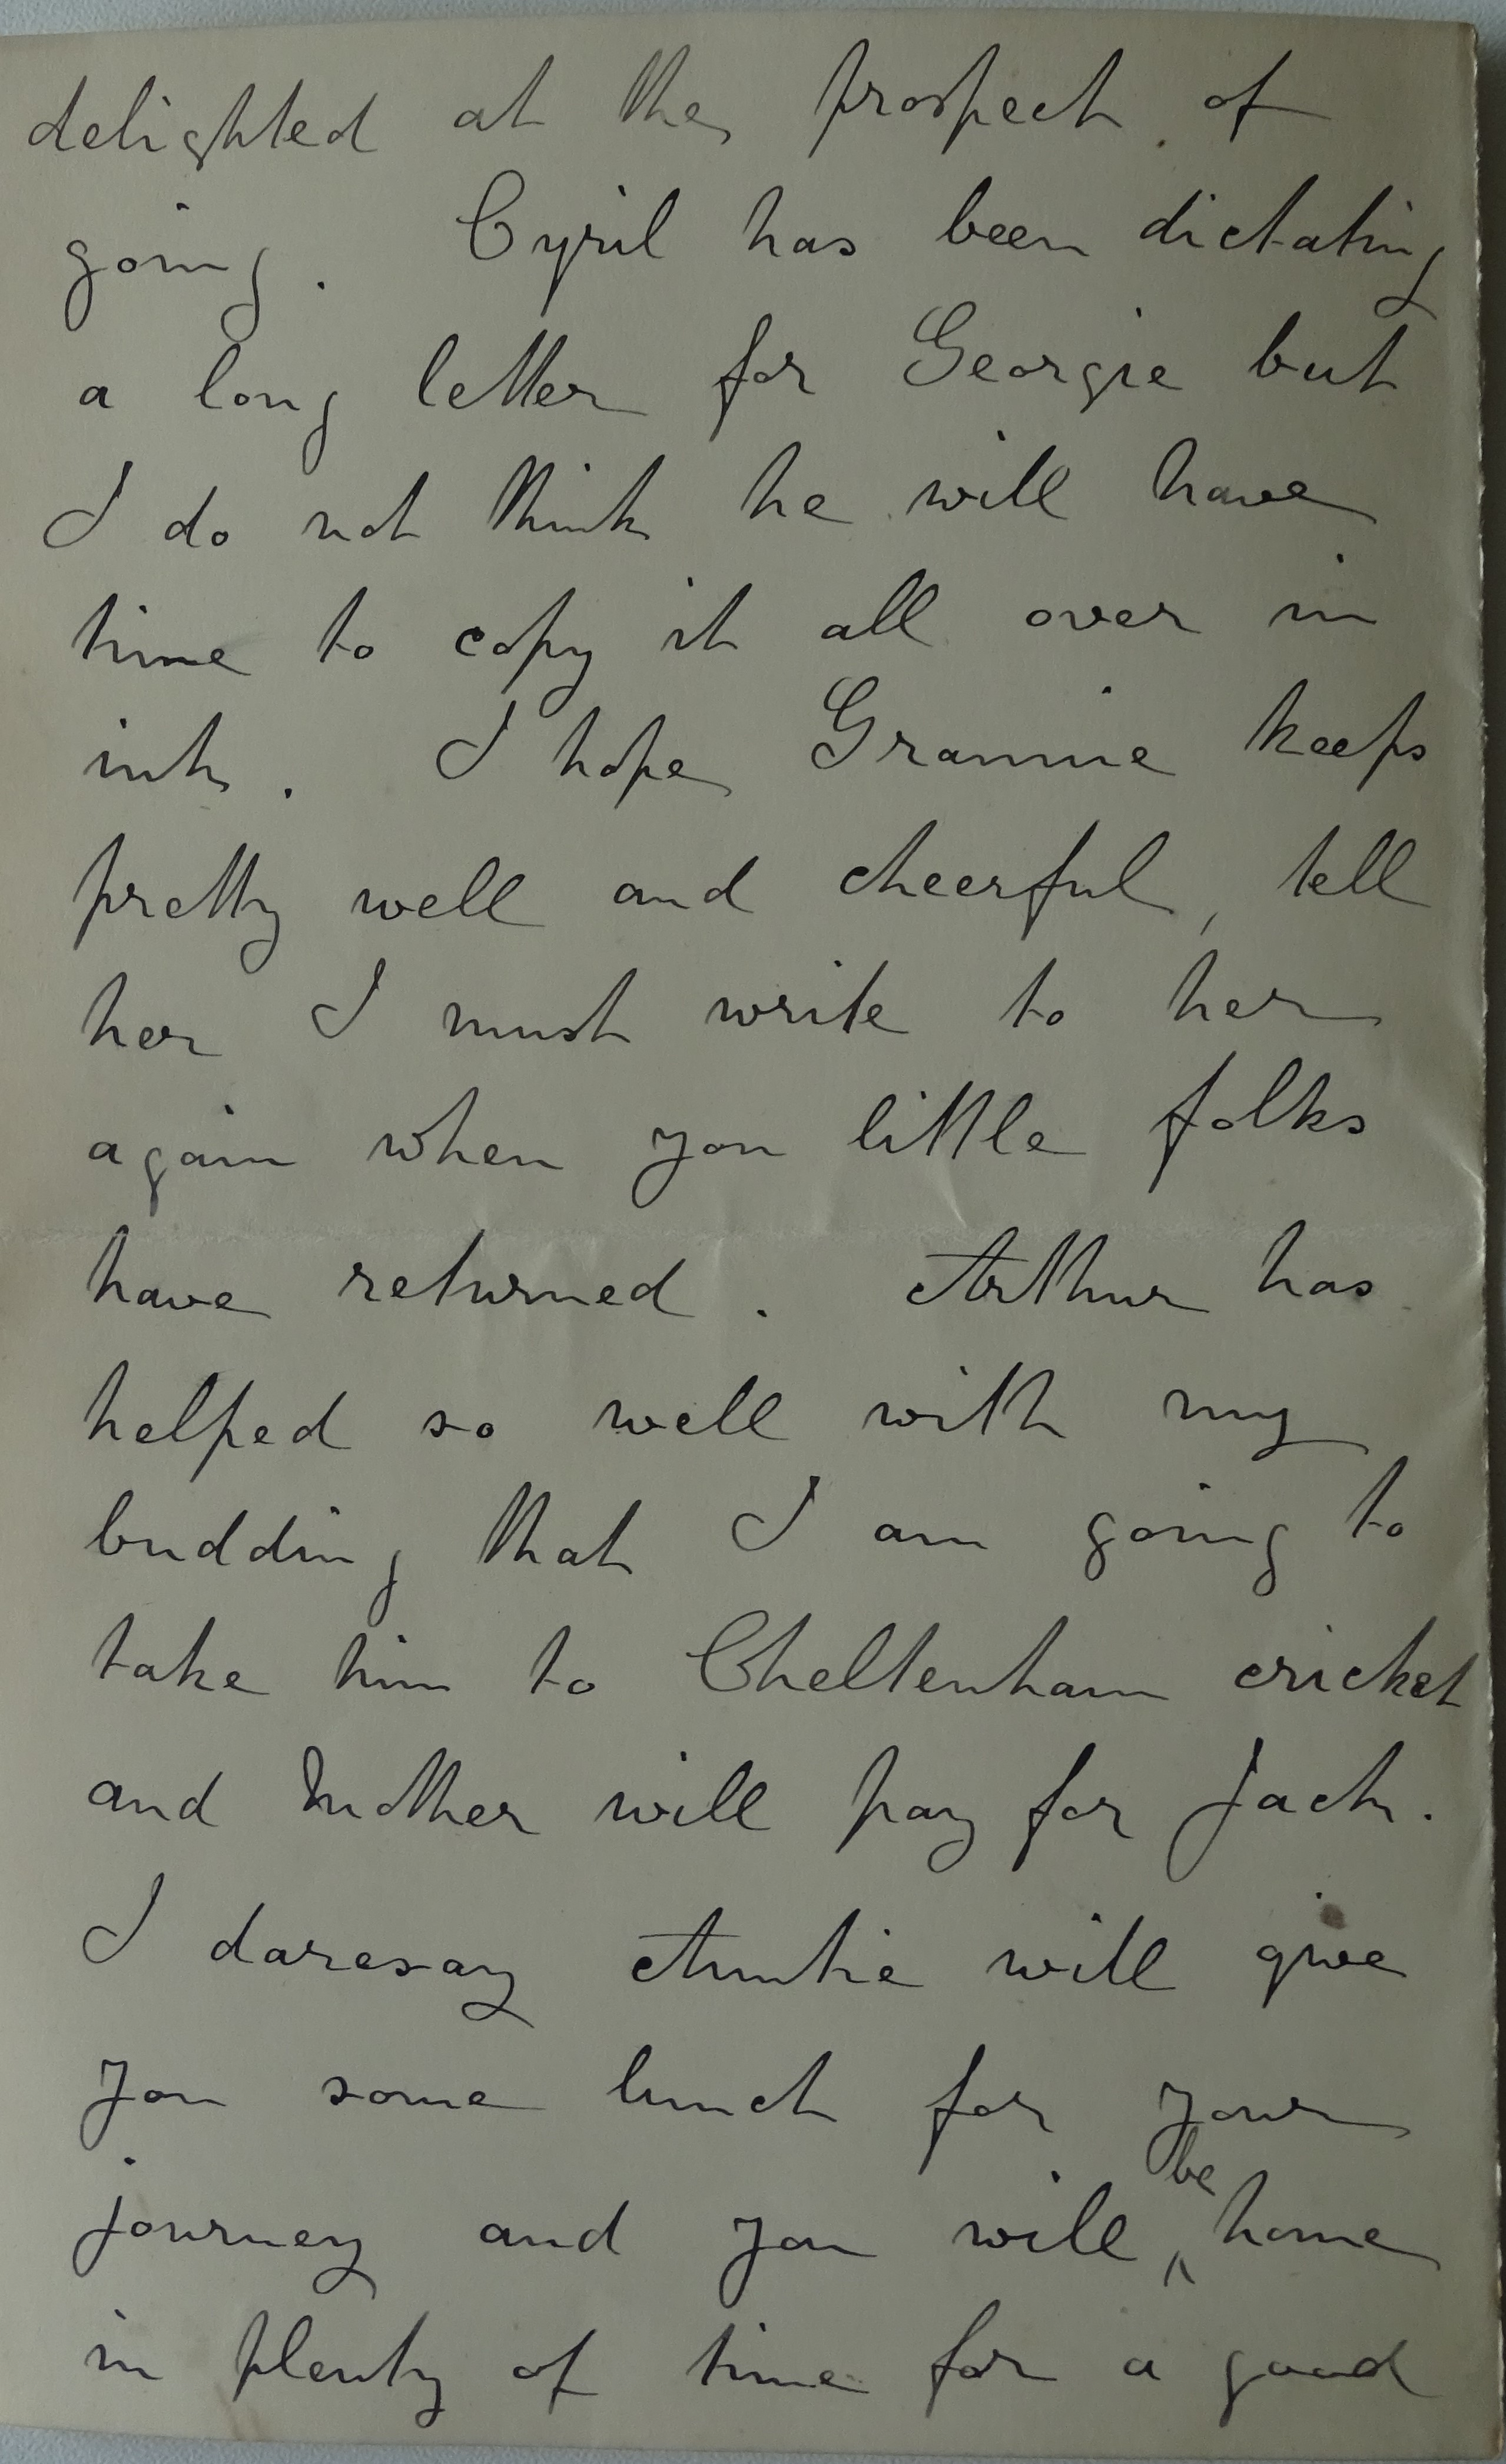 delighted at the prospect of
going. Cyril has been dictating
a long letter for Georgie but
I do not think he will have
time to copy it all over in
ink. I hope Grannie keeps
pretty well and cheerful, tell
her I must write to her
again when you little folks
have returned. Arthur has
helped so well with my
budding that I am going to
take him to Cheltenham cricket
and Mother will pay for Jack.
I daresay Auntie will give
you some lunch for your
journey and you will be home
in plenty of time for a good